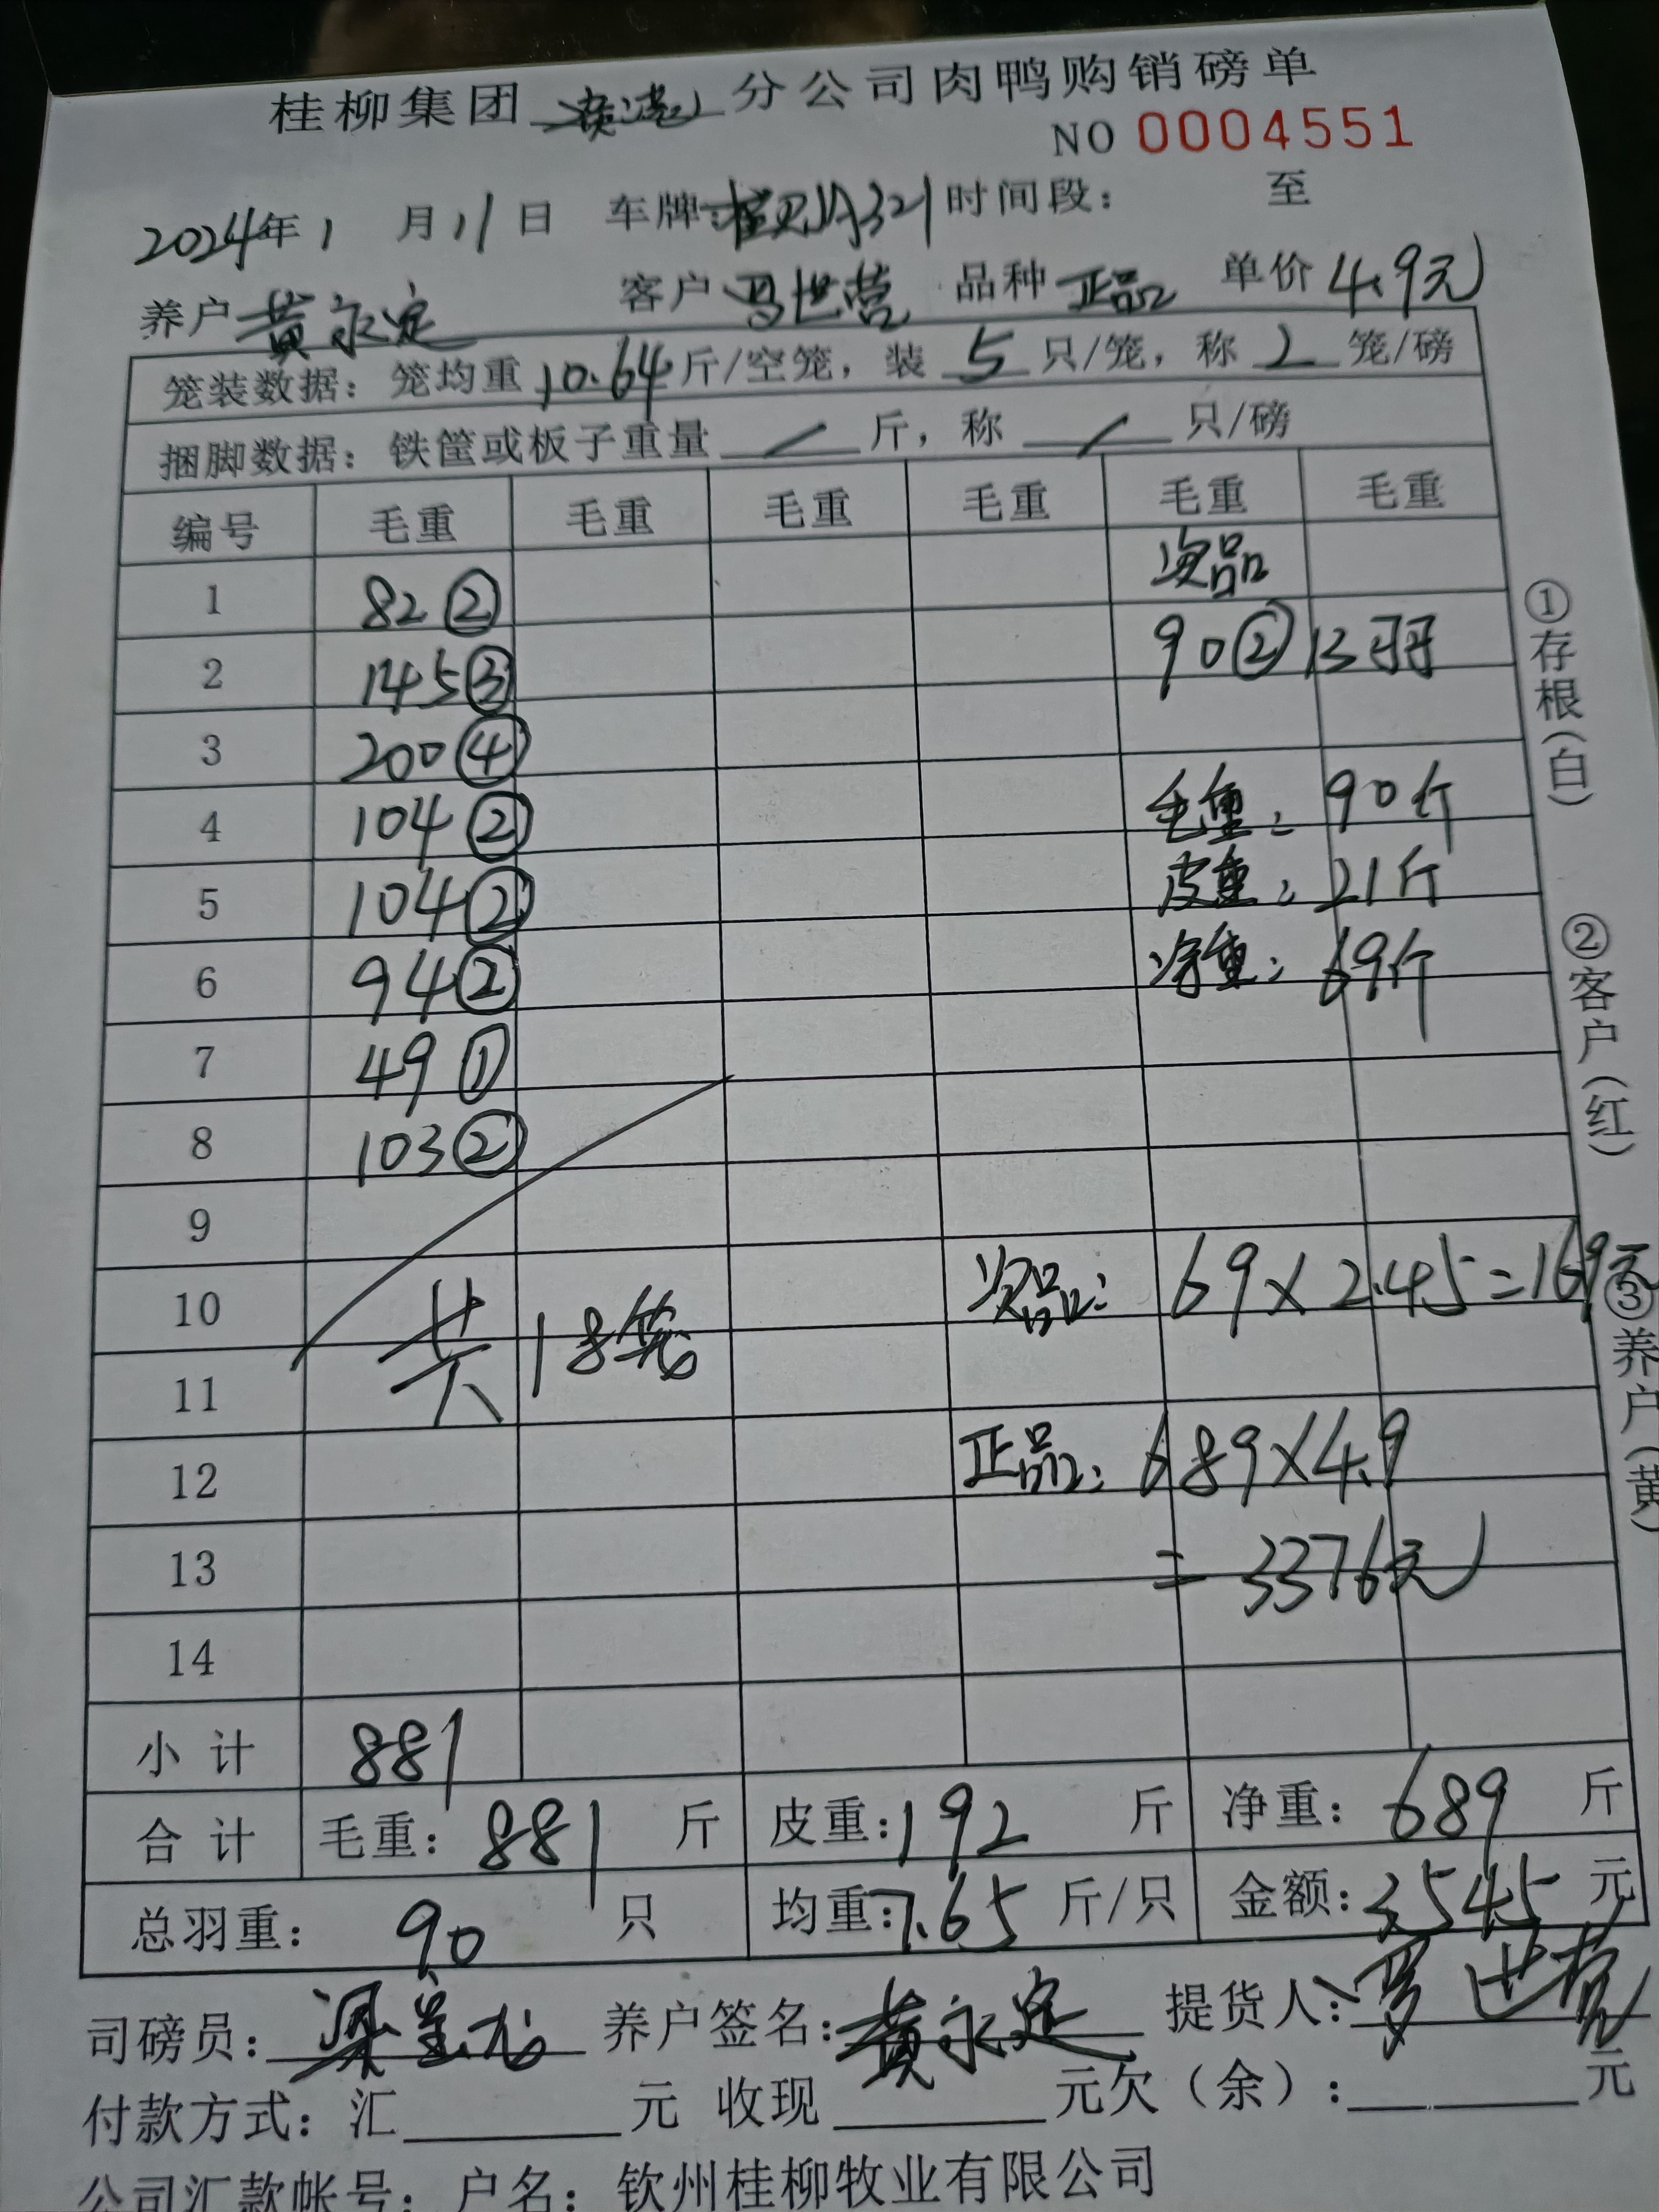 桂柳集团 分公司肉鸭购销磅单
NO 0004551
2024年1月11日 车牌: 时间段: 至
养户 黄永定 客户 品种 正品 单价 4.9元
笼装数据: 笼均重 10.64 斤/空笼, 装 5 只/笼, 称 2 笼/磅
捆脚数据: 铁筐或板子重量 / 斤, 称 / 只/磅
编号 毛重 毛重 毛重 毛重 毛重 毛重
次品
1 82②
2 145③ 90② 13羽
3 200④
4 104② 毛重: 90斤
5 104② 皮重: 21斤
6 94② 净重: 69斤
7 49①
8 103②
9
10 次品: 69×2.45=169元
共18笼
11
12 正品: 689×4.9
13 =3376元
14
小计 881
合计 毛重: 881 斤 皮重: 192 斤 净重: 689 斤
总羽重: 90 只 均重: 7.65 斤/只 金额: 3545 元
司磅员: 养户签名: 黄永定 提货人:
付款方式: 汇 元 收现 元欠(余): 元
公司汇款帐号: 户名: 钦州桂柳牧业有限公司
①存根(白)
②客户(红)
③养户(黄)